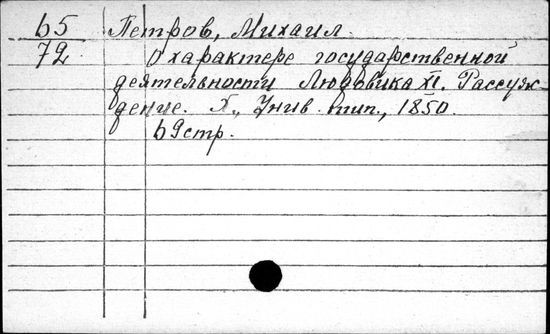 65
72
Петров, Михаил.
О характере государственной
деятельности Людовика XI. Рассуж-
дение. Х., Унив. тип., 1850.
69 стр.